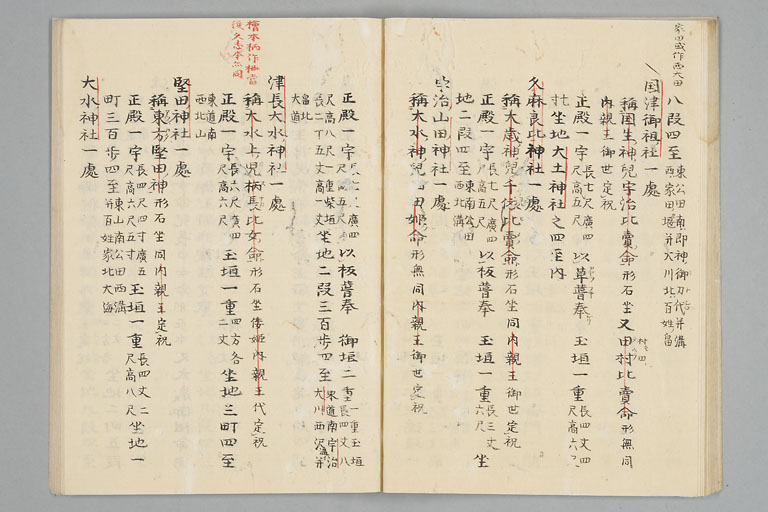 家田或作西大田
八段四至東公田南即神御刀代并溝西家田堰并大川北百姓畠
国津御祖社一處
稱国生神兒宇治比賣命形石坐又田村比賣命形無同
内親王御世定祝
正殿一宇長七尺廣四尺高五尺以草葺奉玉垣一重長四丈四尺高六尺
坐地大土神社之四至内
久麻良比神社一處
稱大歳神兒千依比賣命形石坐同内親王御世定祝
正殿一宇長七尺廣四尺高五尺以板葺奉玉垣一重長三丈六尺坐
地二段四至東南公田西北溝
宇治山田神社一處
稱大水神兒山田姫命形無同内親王御世定祝
正殿一宇長七尺廣四尺高五尺以板葺奉御垣二重一重玉垣長四丈八
尺高一重柴垣長二十五丈高一丈坐地二段三百歩四至東道南宇治大川西沢并
畠北大道
檜木柄作楠當
津長大水神社一處
稱大水上兒栖長比女命形石坐倭姫内親王代定祝
正殿一宇長六尺廣四尺高六尺玉垣一重四方各二丈坐地三町四至
東道南西北山
堅田神社一處
稱東方堅田神形石坐同内親王定祝
正殿一宇長四尺四寸廣五尺高六尺五寸玉垣一重長四丈二尺高八尺坐地一
町三百歩四至東山南公田西溝并百姓家北大海
大水神社一處